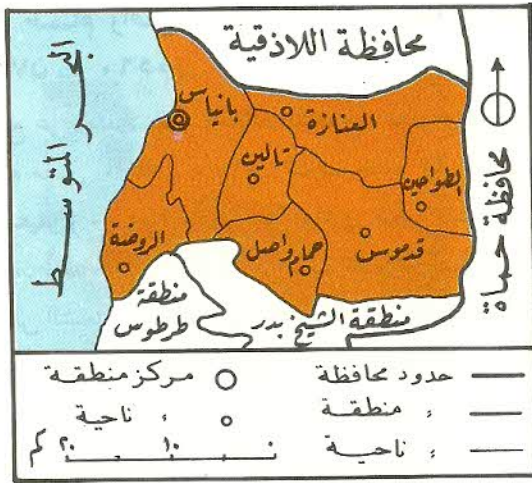 محافظة اللاذقية
البحر المتوسط
محافظة حماة
بانياس
العنازة
تالين
الطواحين
الروضة
حمام واصل
قدموس
منطقة طرطوس
منطقة الشيخ بدر
حدود محافظة
مركز منطقة
، منطقة
، ناحية
، ناحية
٠ ١٠ ٢٠ كم